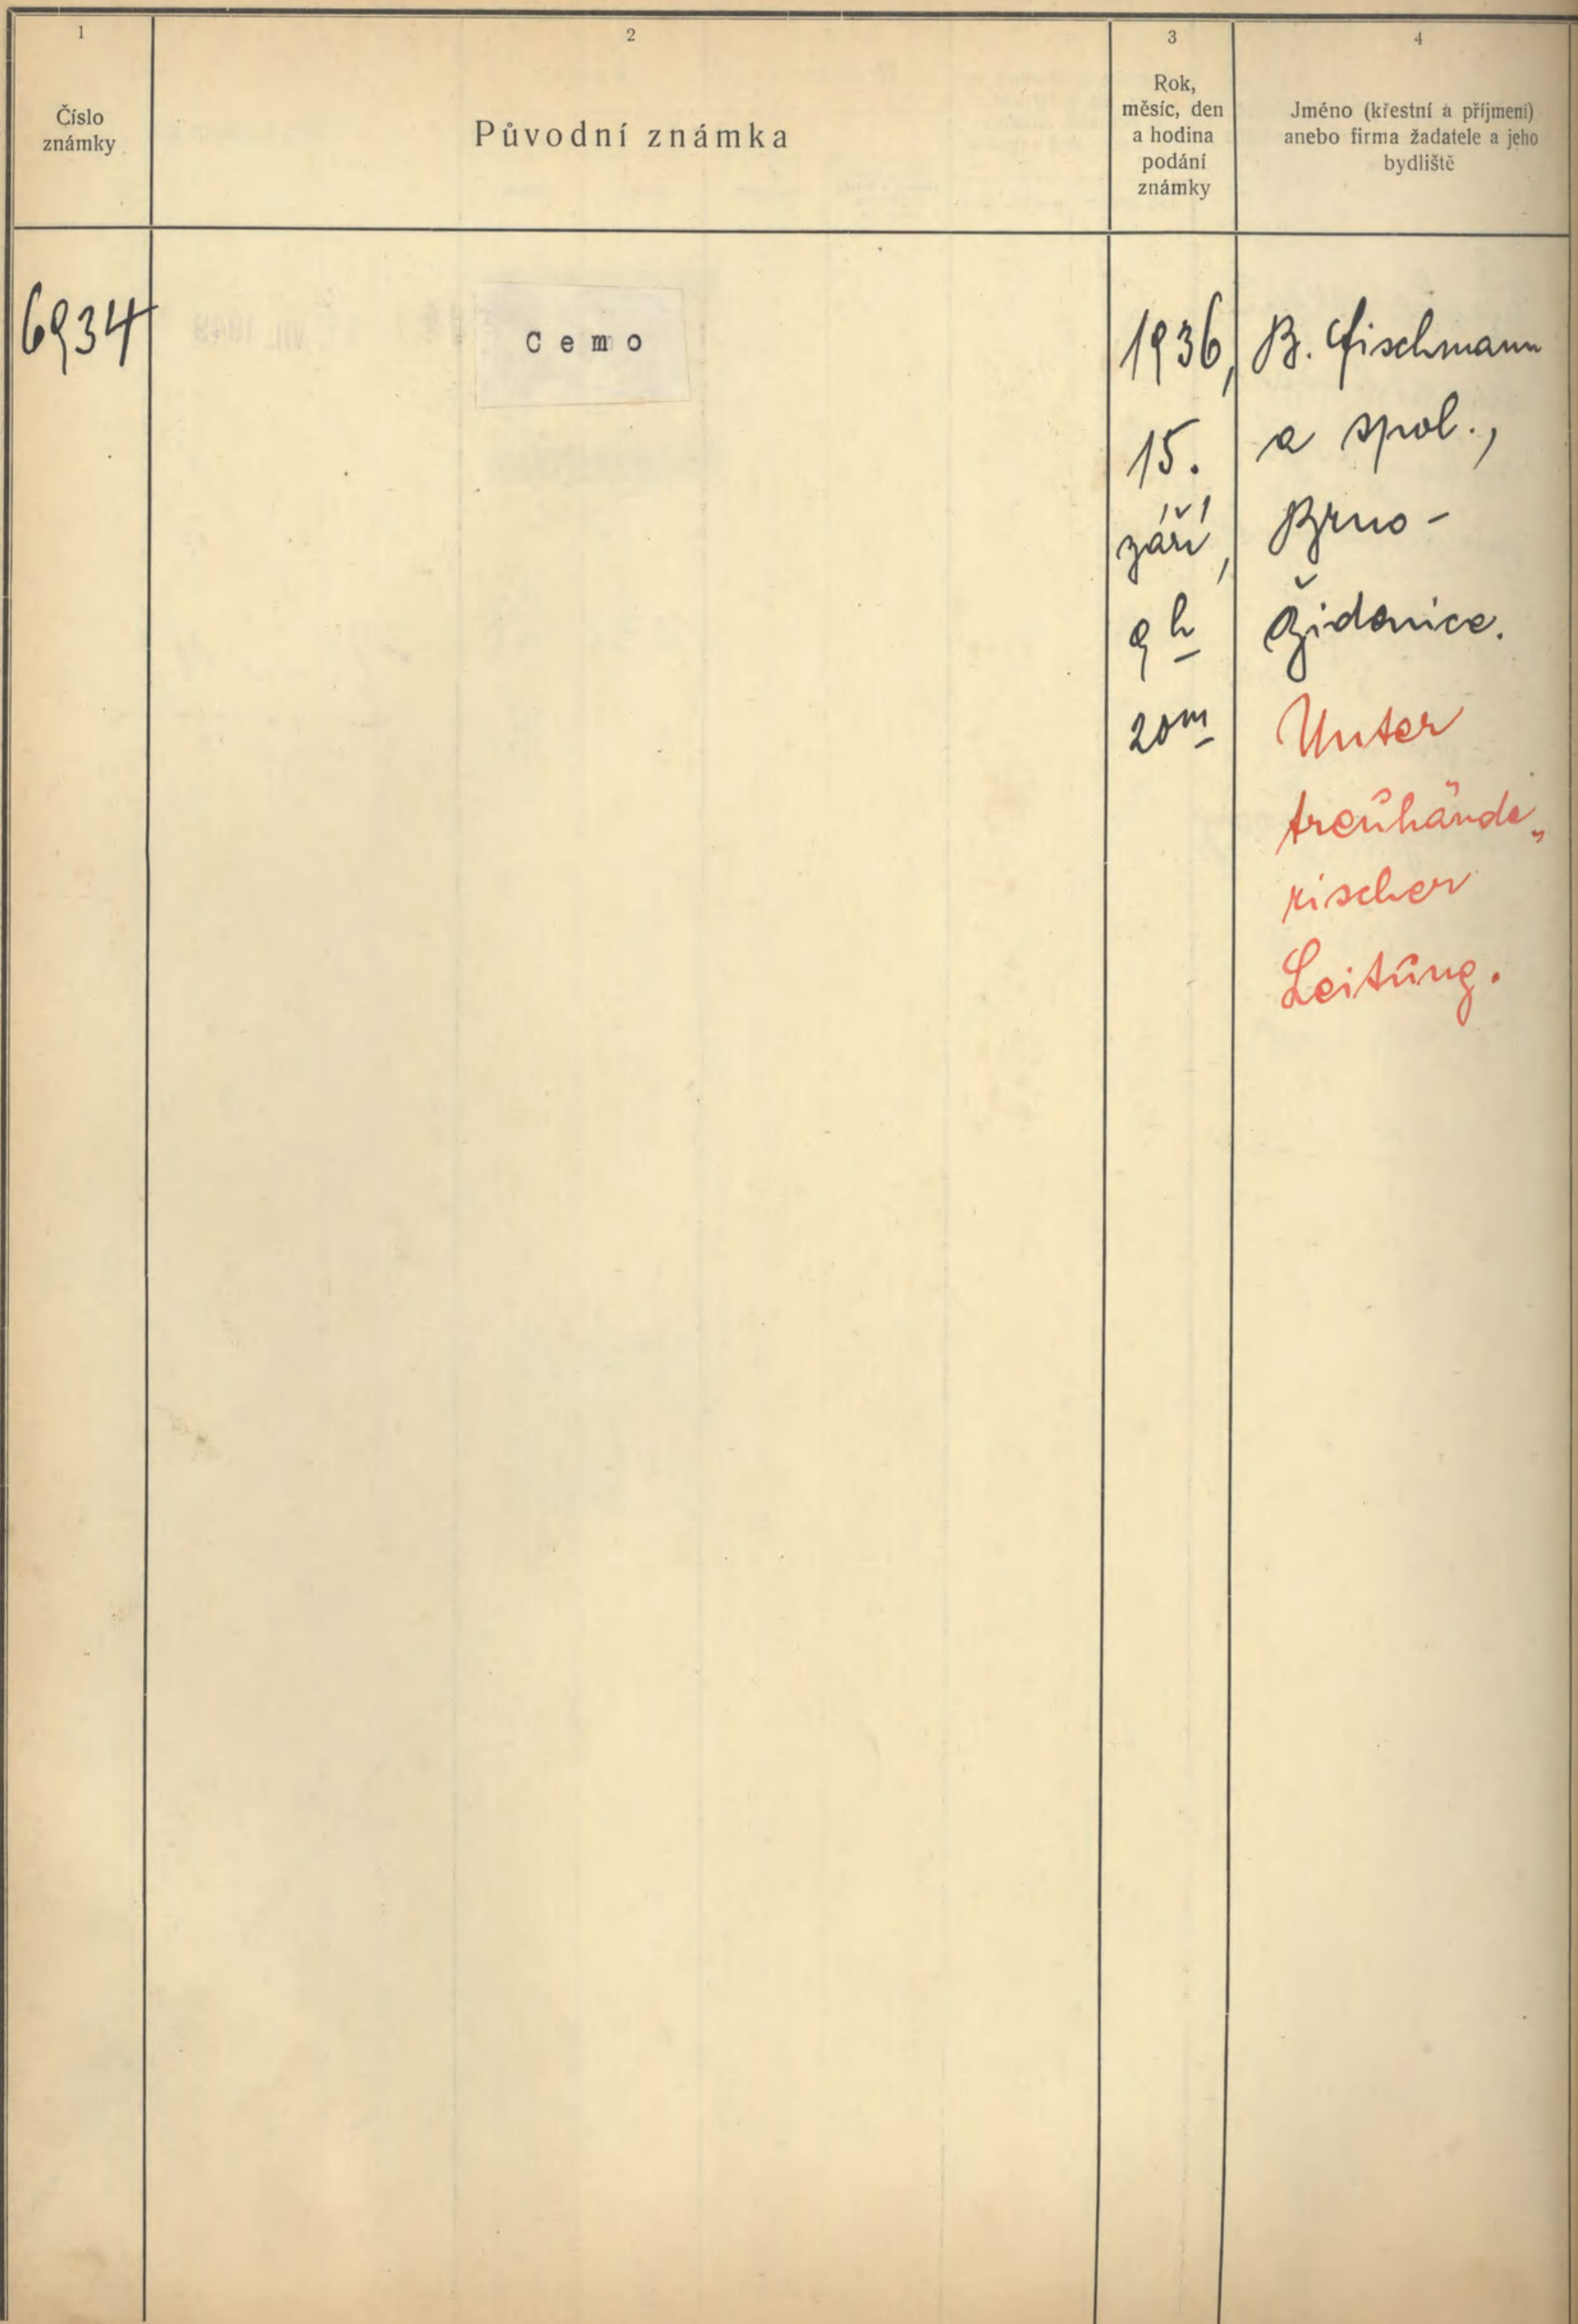 1
Číslo
známky
2
Původní známka
3
Rok,
měsíc, den
a hodina
podání
známky
4
Jméno (křestní a příjmení)
anebo firma žadatele a jeho
bydliště
6934
Cemo
1936,
15.
září,
9 h
20 m
B. Fischmann
a spol.,
Brno-
Židenice.
Unter
treuhände„
rischer
Leitung.